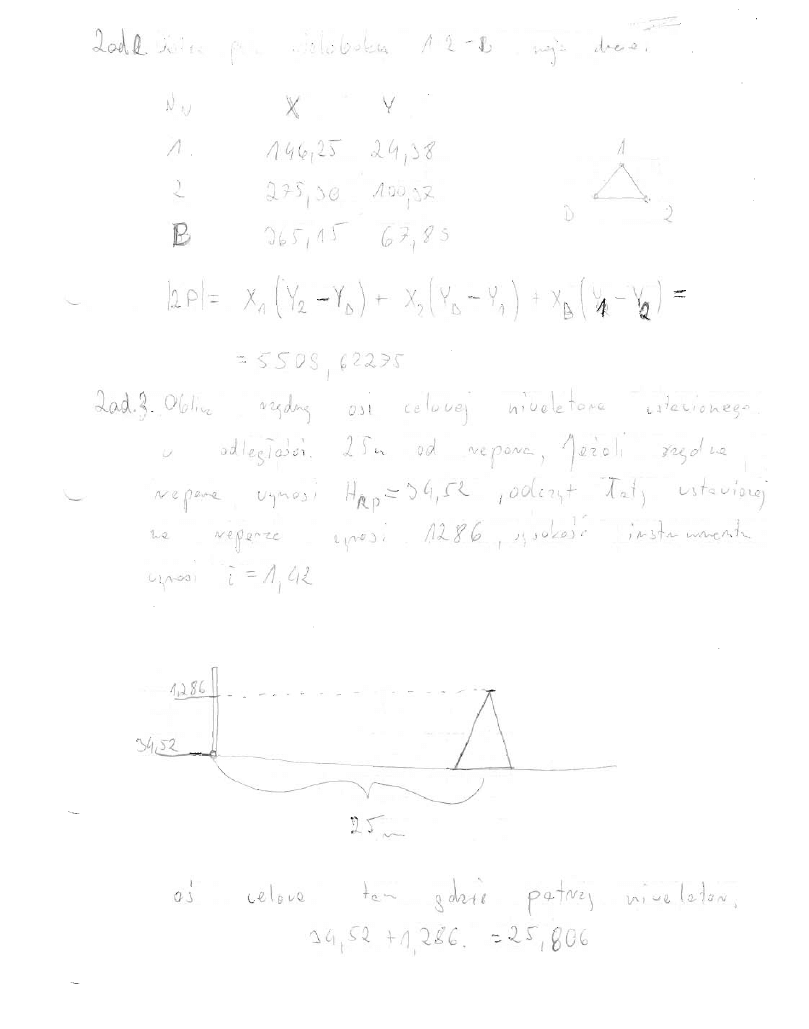 Zad.2 po 1 2-B
Nr X Y
1. 146,25 24,38
2 275,30 100,32
B 365,15 67,83
1
B 2
|2P|= X₁(Y₂-Y_B)+ X₂(Y_B-Y₁)+X_B(Y₁-Y₂)=
=5509,62275
Zad.3. Oblicz rzędną osi celowej niwelatora ustawionego
w odległości. 25m od repera, Jeżeli rzędna
repera wynosi H_Rp=34,52, odczyt łaty ustawionej
na reperze wynosi 1286, wysokość instrumentu
wynosi i=1,42
1,286
34,52
25m
oś celowa tam gdzie patrzy niwelator.
34,52+1,286. =25,806